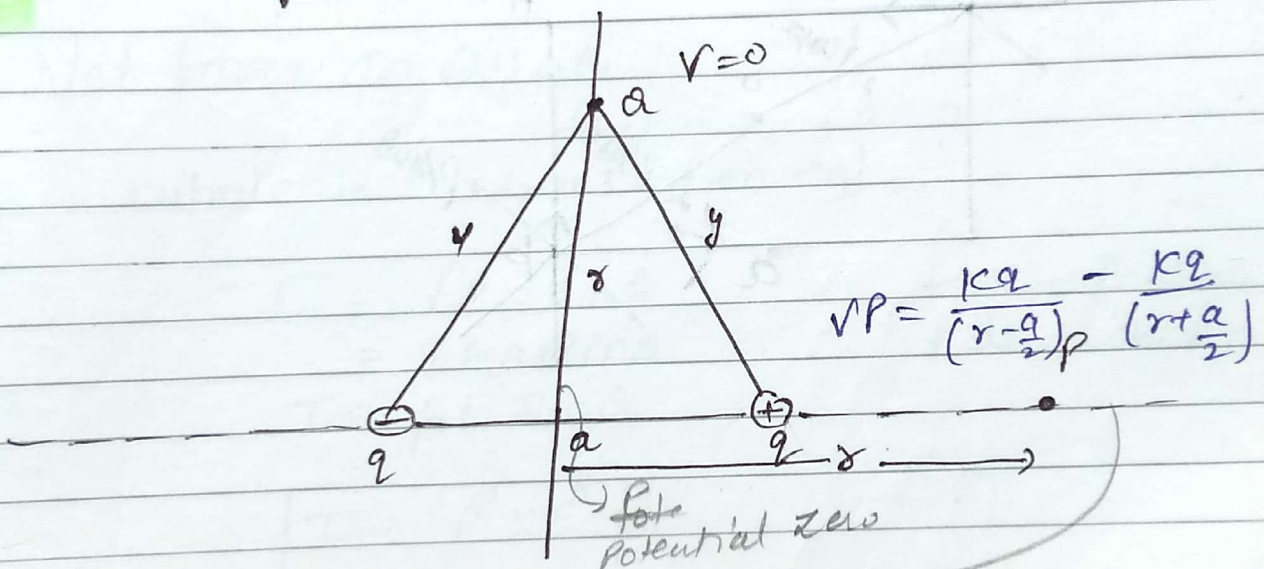 V=0
Q
y
y
r
VP = Kq/(r-a/2) - Kq/(r+a/2)
P
−
+
q
a
q
r
potential zero